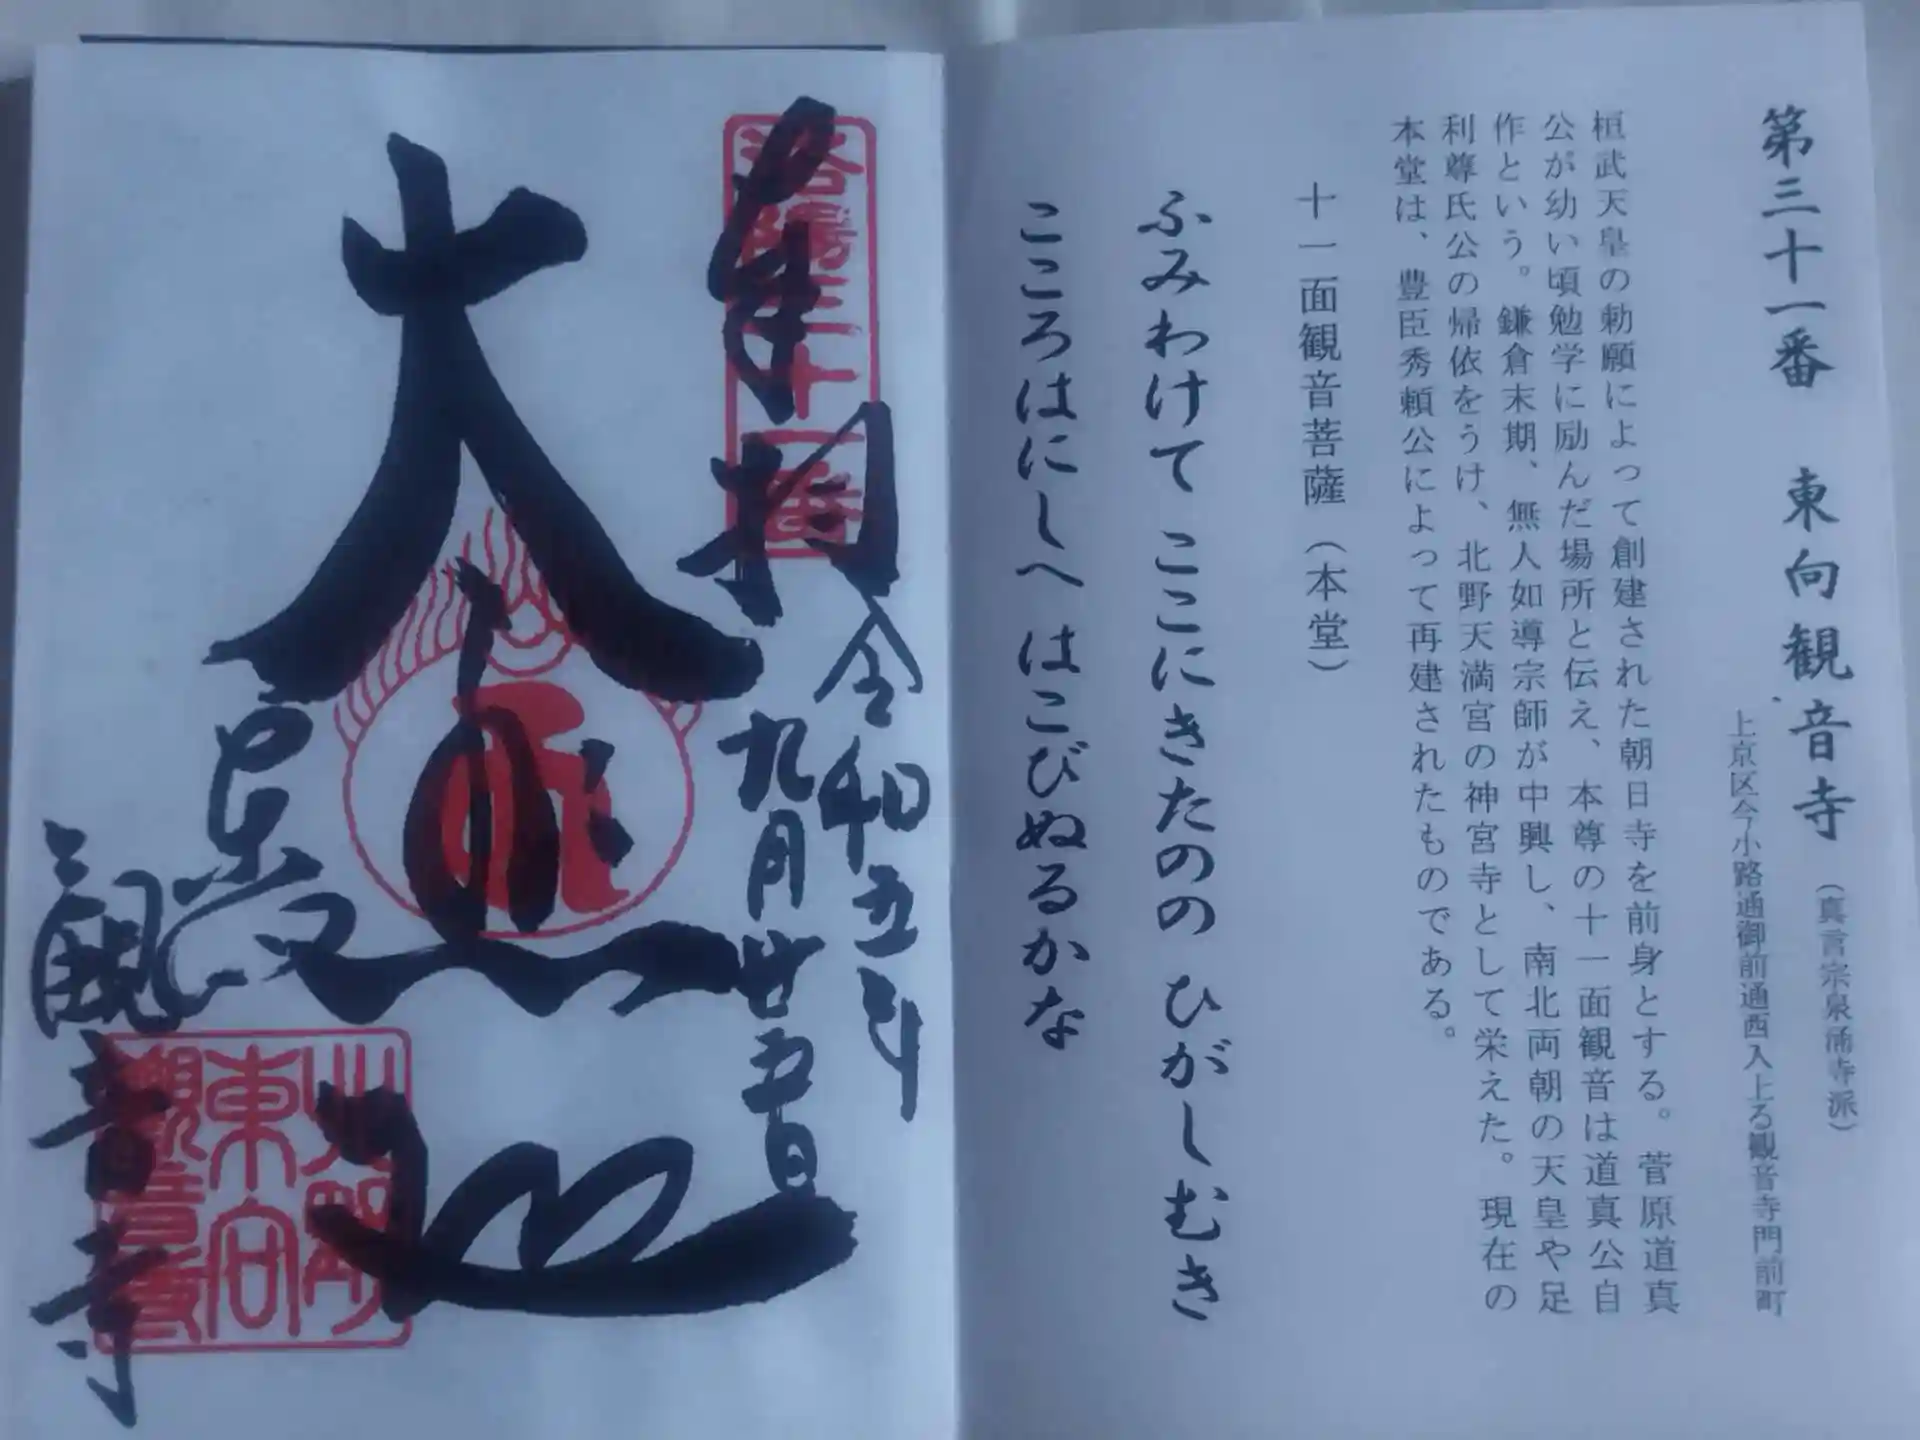 第三十一番 東向観音寺(真言宗泉涌寺派)
上京区今小路通御前通西入上る観音寺門前町
桓武天皇の勅願によって創建された朝日寺を前身とする。菅原道真
公が幼い頃勉学に励んだ場所と伝え、本尊の十一面観音は道真公自
作という。鎌倉末期、無人如導宗師が中興し、南北両朝の天皇や足
利尊氏公の帰依をうけ、北野天満宮の神宮寺として栄えた。現在の
本堂は、豊臣秀頼公によって再建されたものである。
十一面観音菩薩(本堂)
ふみわけて ここにきたのの ひがしむき
こころはにしへ はこびぬるかな
洛陽三十一番
奉拝
令和五年
九月廿五日
大悲
観音寺